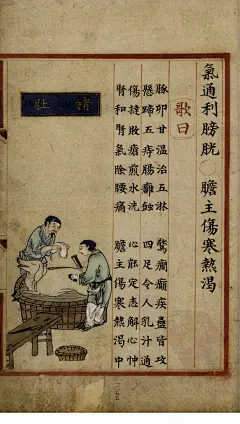 氣通利膀胱〇膽主傷寒熱渴
歌曰
豚卵甘温治五淋 驚癇癲疾蠱皆攻
懸蹄五痔腸癰蝕 四足令人乳汁通
傷撻敗瘡煎水洗 心能定志解心忡
腎和腎氣除腰痛 膽主傷寒熱渴中
猪肚